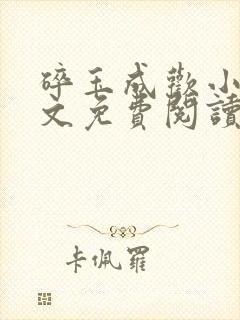 碎玉成歡小
文免費閱讀
卡佩羅